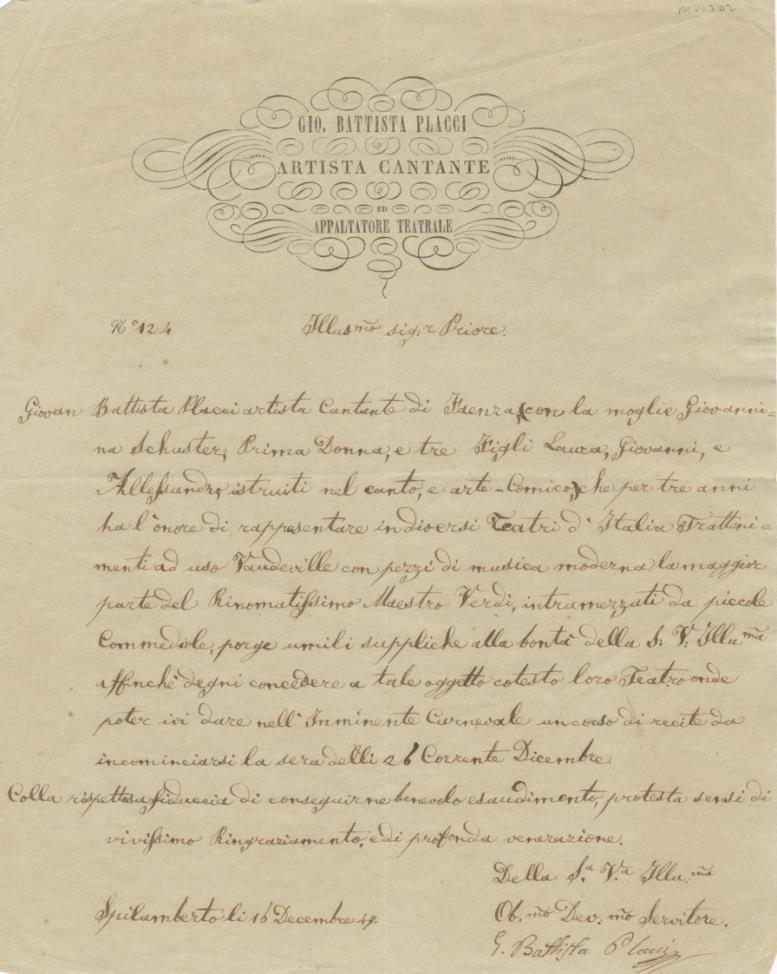 MUU202
GIO. BATTISTA PLACCI
ARTISTA CANTANTE
ED
APPALTATORE TEATRALE
N.o 124 Illusmo sig.r Priore.
Giovan Battista Placci artista Cantante di Faenza, (con la moglie Giovanni=
na Schuster, Prima Donna, e tre Figli Laura, Giovanni, e
Allessandro istruiti nel canto, e arte-Comico,) che per tre anni
ha l'onore di rappesentare in diversi Teatri d'Italia Trattini=
menti ad uso Vaudeville con pezzi di musica moderna la maggior
parte del Rinomatissimo Maestro Verdi, intramezzati da piccole
Commediole, porge umili suppliche alla bontà della S. V. Illu.ma
affinchè degni concedere a tale oggetto cotesto loro Teatro onde
poter ivi dare nell'Imminente Carnevale un corso di recite da
incominciarsi la sera delli 26 Corrente Dicembre.
Colla rispettosa fiduccia di conseguirne benevolo esaudimento, protesta sensi di
vivissimo Ringraziamento, e di profonda venerazione.
Della S.a V.a Illu.ma
Spilamberto li 16 Decembre 49.
Ob.mo Dev.mo Servitore.
G. Battista Placci